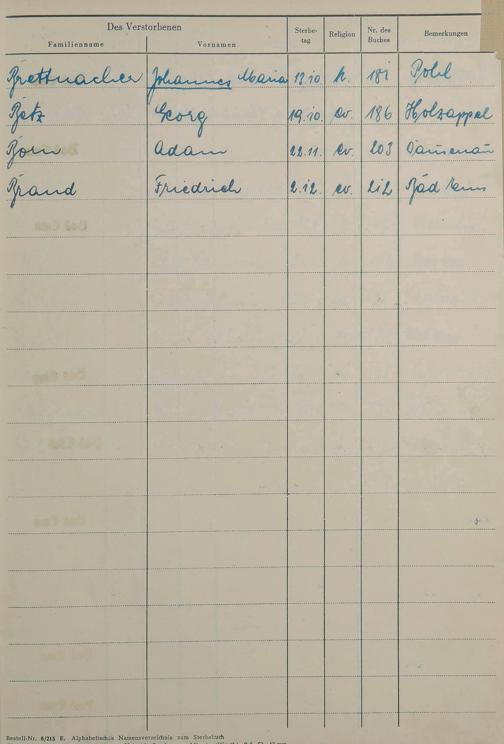 Des Verstorbenen
Familienname Vornamen Sterbe-tag Religion Nr. des Buches Bemerkungen
Brettnacher Johannes Maria 17.10. k. 181 Pohl
Betz Georg 19.10. ev. 186 Holzappel
Born Adam 22.11. ev. 203 Dausenau
Brand Friedrich 2.12. ev. 212 Bad Ems
Bestell-Nr. 6/215 E. Alphabetisches Namensverzeichnis zum Sterbebuch